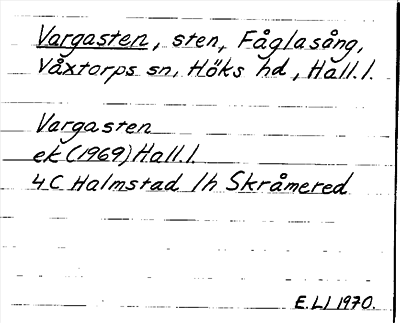 Vargasten, sten, Fåglasång,
Våxtorps sn, Höks hd, Hall.l.
Vargasten
ek (1969) Hall.l.
4C Halmstad 1h Skråmered
E.LI 1970.